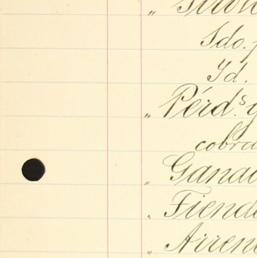 Sdo.
Id.
" Pérds. y
cobra
" Ganad
" Tiend
" Arren